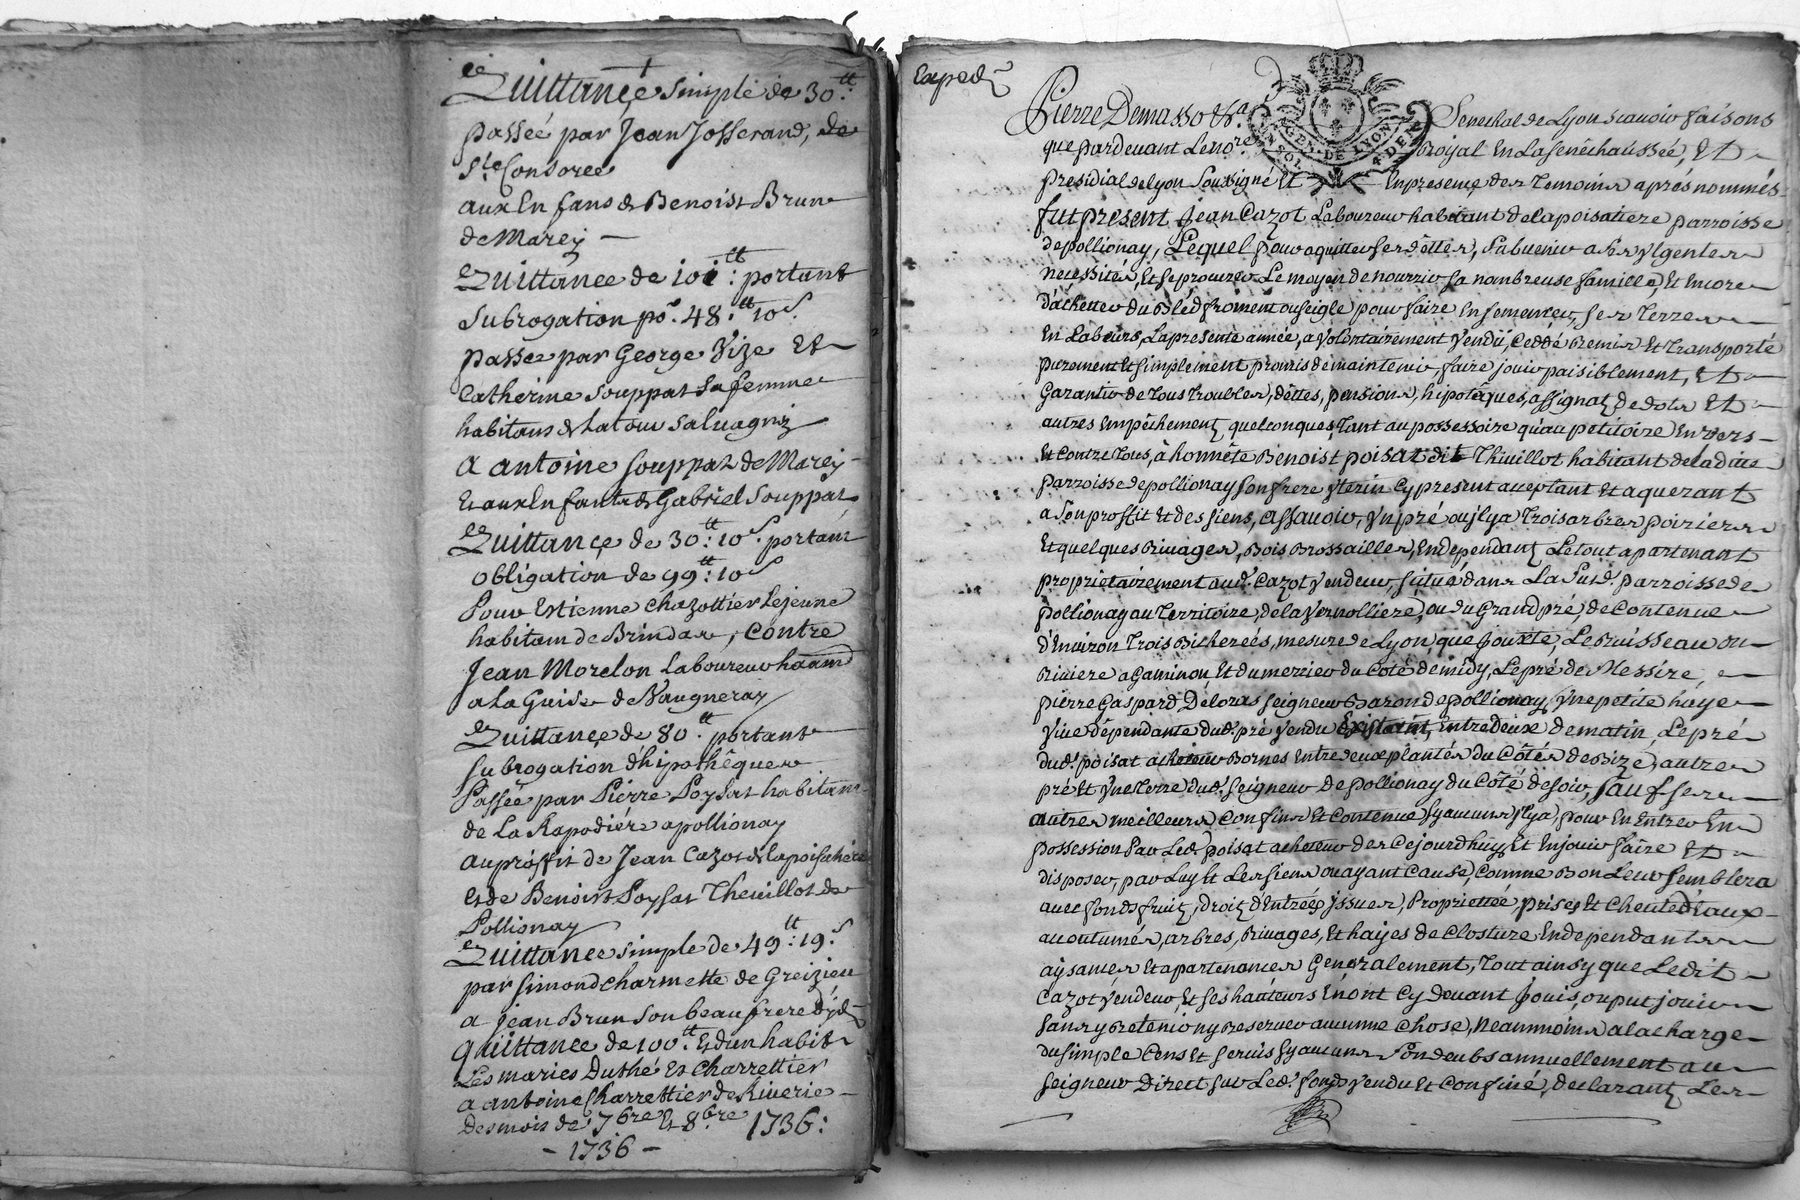 Quittance simple de 30.tt
passée par Jean Josserand, de
Ste Consorce
aux Enfans de Benoist Brun
de Marcy
Quittance de 101.tt: portant
Subrogation po. 48.tt 10s.
passée par George Vize Et
Catherine Souppat sa femme
habitans de Latour Salvagny
a antoine Souppat de Marcy
Et aux Enfants de Gabriel Souppat
Quittance de 30.tt: 10s. portant
obligation de 99.tt: 10s
Pour Estienne Chazottier Lejeune
habitant de Brindas, Contre
Jean Morelon Laboureur
a La de Vaugneray
Quittance de 80.tt portant
subrogation d'hipothèque
Passée par Pierre Poysat habitant
de La Rapodière a pollionay
au proffit de Jean Cazot de lapoisatiere
Et de Benoist Poysat Thevillot de
Pollionay
Quittance simple de 49.tt: 19.s
par Simond Charmette de Greizieu
a Jean Brun son beaufrere
quittance de 100.tt Et d'un habit
Les maries Duthé Et Charrettier
a antoine Charrettier de Riverie
Des mois de 7bre Et 8.bre 1736:
- 1736 -
Exped.
Pierre Demasso Senechal de Lyon Scavoir faisons
que pardevant Leno.re royal En La senechaussée, Et
presidial de Lyon Soussigné Et En presence des Temoins aprés nommés
fut present Jean Cazot Laboureur habitant de la poisatiere parroisse
de pollionay, Lequel pour aquitter ses dettes, Subvenir a Ses Urgentes
necessités, Et se procurer Le moyen de nourrir sa nombreuse famille, Et Encore
d'acheter du Bled froment ou seigle pour faire Ensemencer, Ses Terres
En Labeurs, La presente année, a volontairement vendu, Ceddé Remis Et Transporté
purement Et simplement, promis de maintenir, faire jouir paisiblement, Et
Garantir de tous troubles, dettes, pensions, hipotéques, assignat de dots Et
autres Empéchement quelconques, Tant au possessoire qu'au petitoire Envers
Et Contre Tous, à honnéte Benoist poisat dit Thivillot habitant de la dite
parroisse de pollionay son frere Vterin Cy present acceptant Et aquerant
a Son proffit Et des siens, assavoir, Vn pré ou il y a Trois arbres poiriers
Et quelques Rivages, Bois Brossailles, En dépendant Le tout apartenant
proprietairement aud. Cazot vendeur, situé dans La Susd. parroisse de
pollionay au Territoire, de la Vernolliere, ou du Grand pré, de Contenue
d'Environ Trois Bicherées, mesure de Lyon, que Jouxte, Le Ruisseau ou
Riviere Et du mercier du Côté de midy, Le pré de Messire,
pierre Gaspard Deloras seigneur Baron de pollionay, Vne petite haye
Vive dépendante dud. pré vendu Existant, Entredeux de matin, Le pré
dud. poisat acheteur Bornes Entredeux plantés du Côté de Bize, autre
pré Et Vne Terre dud. Seigneur de pollionay du Côté de soir, Sauf ses
autres meilleurs Confins Et Contenue sy aucuns il y a, pour En Entrer En
possession Par Led. poisat acheteur des Cejourdhuy Et En jouir faire Et
disposer, par Luy Et Les siens ou ayant Cause, Comme Bon Leur Semblera
avec fonds fruit, droit d'Entrées issues, Propriettée, prises Et Chute d'Eaux
accoutumés, arbres, Rivages, Et hayes de Closture En dependants
aysances Et apartenances Generalement, Tout ainsy que Ledit
Cazot vendeur, Et ses hauteurs En ont Cy devant Joui, ou put jouir
Sans y Retenir ny Reserver aucune Chose, Neanmoins a la charge
du simple Cens Et servis sy aucuns Sont deubs annuellement au
seigneur Direct sur Led. fonds vendu Et Confiné, declarant Les